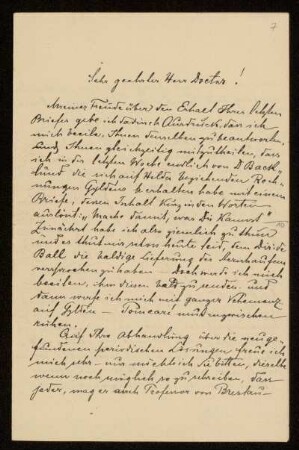 7
Sehr geehrter Herr Doctor!
Meiner Freude über den Erhalt Ihres letzten
Briefes gebe ich dadurch Ausdruck, dass ich
mich beeile, Ihnen denselben zu beantworten,
und Ihnen gleichzeitig mitzutheilen, dass
ich in der letzten Woche endlich von D. Back-
lund die sich auf Hilda beziehenden Rech-
nungen Gyldéns erhalten habe mit einem
Briefe, dessen Inhalt kurz in den Worten
ausläuft: "Mache damit, was Du kannst"
Zunächst habe ich also ziemlich zu thun
und thut mir schon heute leid, dem
Ball die baldige Lieferung des Sternhaufens
versprochen zu haben. Doch werde ich mich
beeilen, ihm diesen bald zu senden und
dann werfe ich mich mit ganzer Vehemenz
auf Gyldén - Poincaré
Auf Ihre Abhandlung über die neu ge-
fundenen periodischen Lösungen freue ich
mich sehr - nur möchte ich Sie bitten, dieselbe
wenn noch möglich so zu schreiben, dass
jeder, mag er auch Professor von Breslau